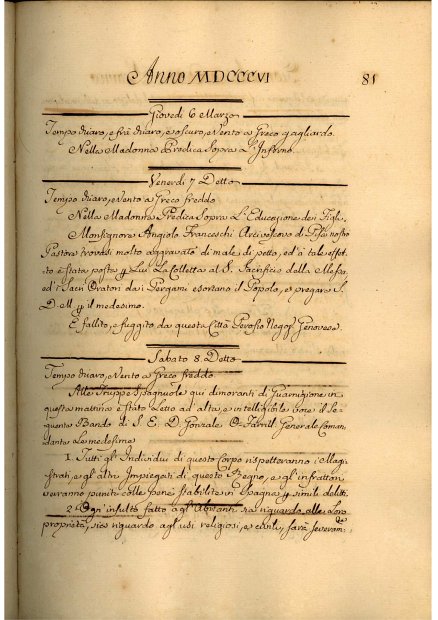 Anno MDCCCVI 81
Giovedi 6 Marzo
Tempo chiaro, e fra chiaro, e oscuro, e Vento a Greco gagliardo.
Nella Madonna Predica Sopra L'Inferno.
Venerdi 7 Detto
Tempo chiaro, e Vento a Greco freddo
Nella Madonna Predica Sopra L'Educazione dei Figli.
Monsignore Angiolo Franceschi Arcivescovo di Pisa nostro
Pastore trovasi molto aggravato di male di petto, ed à tale effet-
to è stata posta p Lui La Colletta al S. Sacrificio della Messa,
ed i Sacri Oratori dai Pergami esortano il Popolo, a pregare S.
D. M. p il medesimo.
È fallito, e fuggito da questa Città Negoz Genovese.
Sabato 8. Detto
Tempo chiaro, e Vento a Greco freddo
Alle Truppe Spagnuole qui dimoranti di Guarnigione in
questa mattina è stato Letto ad alta, e intelligibile voce il Se-
guente Bando di S. E. D. Gonzalo O-Farrill Generale Coman-
dante Le medesime
1. Tutti gl'Individui di questo Corpo rispetteranno i Magi-
strati, e gl'altri Impiegati di questo Regno, e gl'infrattori
verranno puniti colle pene stabilite in Spagna p simili delitti.
2. Ogni insulto fatto agl'Abitanti sia riguardo alle Loro
proprietà, sia riguardo agl'usi religiosi, e civili, sarà severam: